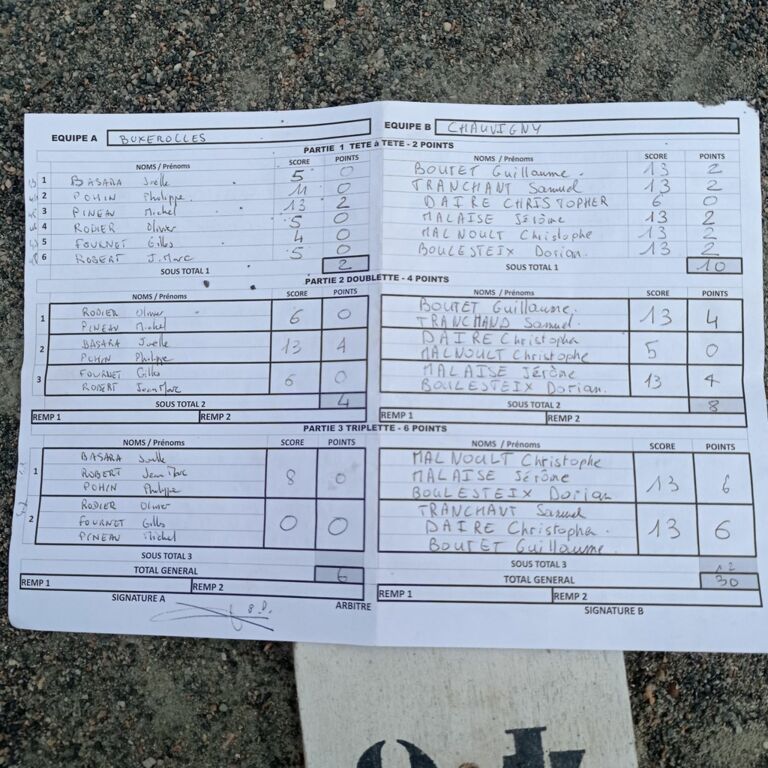 EQUIPE A BUXEROLLES EQUIPE B CHAUVIGNY
PARTIE 1 TETE à TETE - 2 POINTS
NOMS / Prénoms SCORE POINTS NOMS / Prénoms SCORE POINTS
1 BASARA Joelle 5 0 BOUTET Guillaume. 13 2
2 POHIN Philippe. 11 0 TRANCHANT Samuel 13 2
3 PINEAU Michel 13 2 DAIRE CHRISTOPHER 6 0
4 RODIER Olivier 5 0 MALAISE Jérôme 13 2
5 FOURNET Gilles 4 0 MALNOULT Christophe 13 2
6 ROBERT J. Marc 5 0 BOULESTEIX Dorian. 13 2
SOUS TOTAL 1 2 SOUS TOTAL 1 10
PARTIE 2 DOUBLETTE - 4 POINTS
NOMS / Prénoms SCORE POINTS NOMS / Prénoms SCORE POINTS
1 RODIER Olivier 6 0 BOUTET Guillaume. 13 4
PINEAU Michel TRANCHAND Samuel.
2 BASARA Joelle 13 4 DAIRE Christopha 5 0
POHIN Philippe MALNOULT Christophe
3 FOURNET Gilles 6 0 MALAISE Jérôme 13 4
ROBERT Jean Marc BOULESTEIX Dorian.
SOUS TOTAL 2 4 SOUS TOTAL 2 8
REMP 1 REMP 2 REMP 1 REMP 2
PARTIE 3 TRIPLETTE - 6 POINTS
NOMS / Prénoms SCORE POINTS NOMS / Prénoms SCORE POINTS
1 BASARA Joelle 8 0 MALNOULT Christophe 13 6
ROBERT Jean Marc MALAISE Jérôme
POHIN Philippe BOULESTEIX Dorian
2 RODIER Olivier 0 0 TRANCHAUT Samuel 13 6
FOURNET Gilles DAIRE Christopha.
PINEAU Michel BOUTET Guillaume.
SOUS TOTAL 3 SOUS TOTAL 3 12
TOTAL GENERAL 6 TOTAL GENERAL 30
REMP 1 REMP 2 REMP 1 REMP 2
SIGNATURE A ARBITRE SIGNATURE B